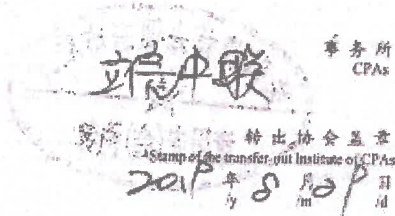 事务所
CPAs
立信中联
转出协会盖章
Stamp of the transfer-out Institute of CPAs
2018年8月29日
/y /m /d